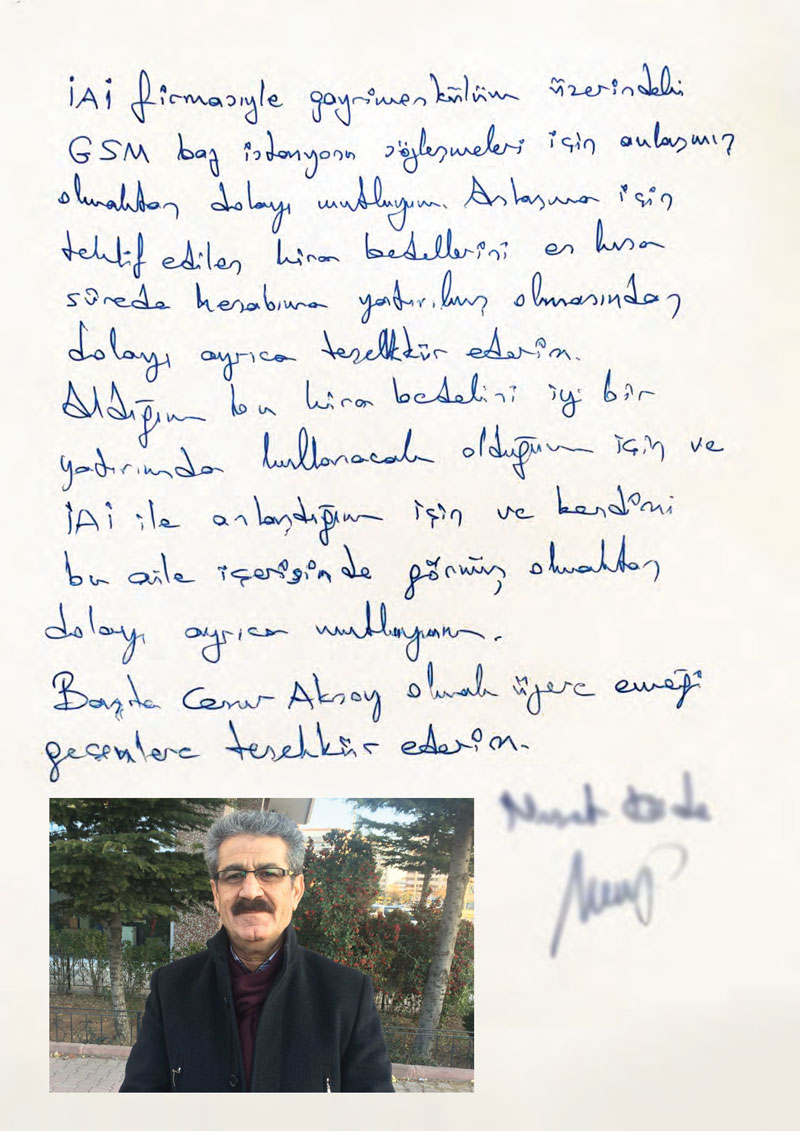 İAİ firmasıyle gayrimenkülüm üzerindeki
GSM baz istasyonu sözleşmeleri için anlaşmış
olmaktan dolayı mutluyum. Anlaşma için
teklif edilen kira bedellerini en kısa
sürede hesabıma yatırılmış olmasından
dolayı ayrıca teşekkür ederim.
Aldığım bu kira bedelini iyi bir
yatırımda kullanacak olduğum için ve
İAİ ile anlaştığım için ve kendimi
bu aile içerisinde görmüş olmaktan
dolayı ayrıca mutluyum.
Başta Cenur Aksoy olmak üzere emeği
geçenlere teşekkür ederim.